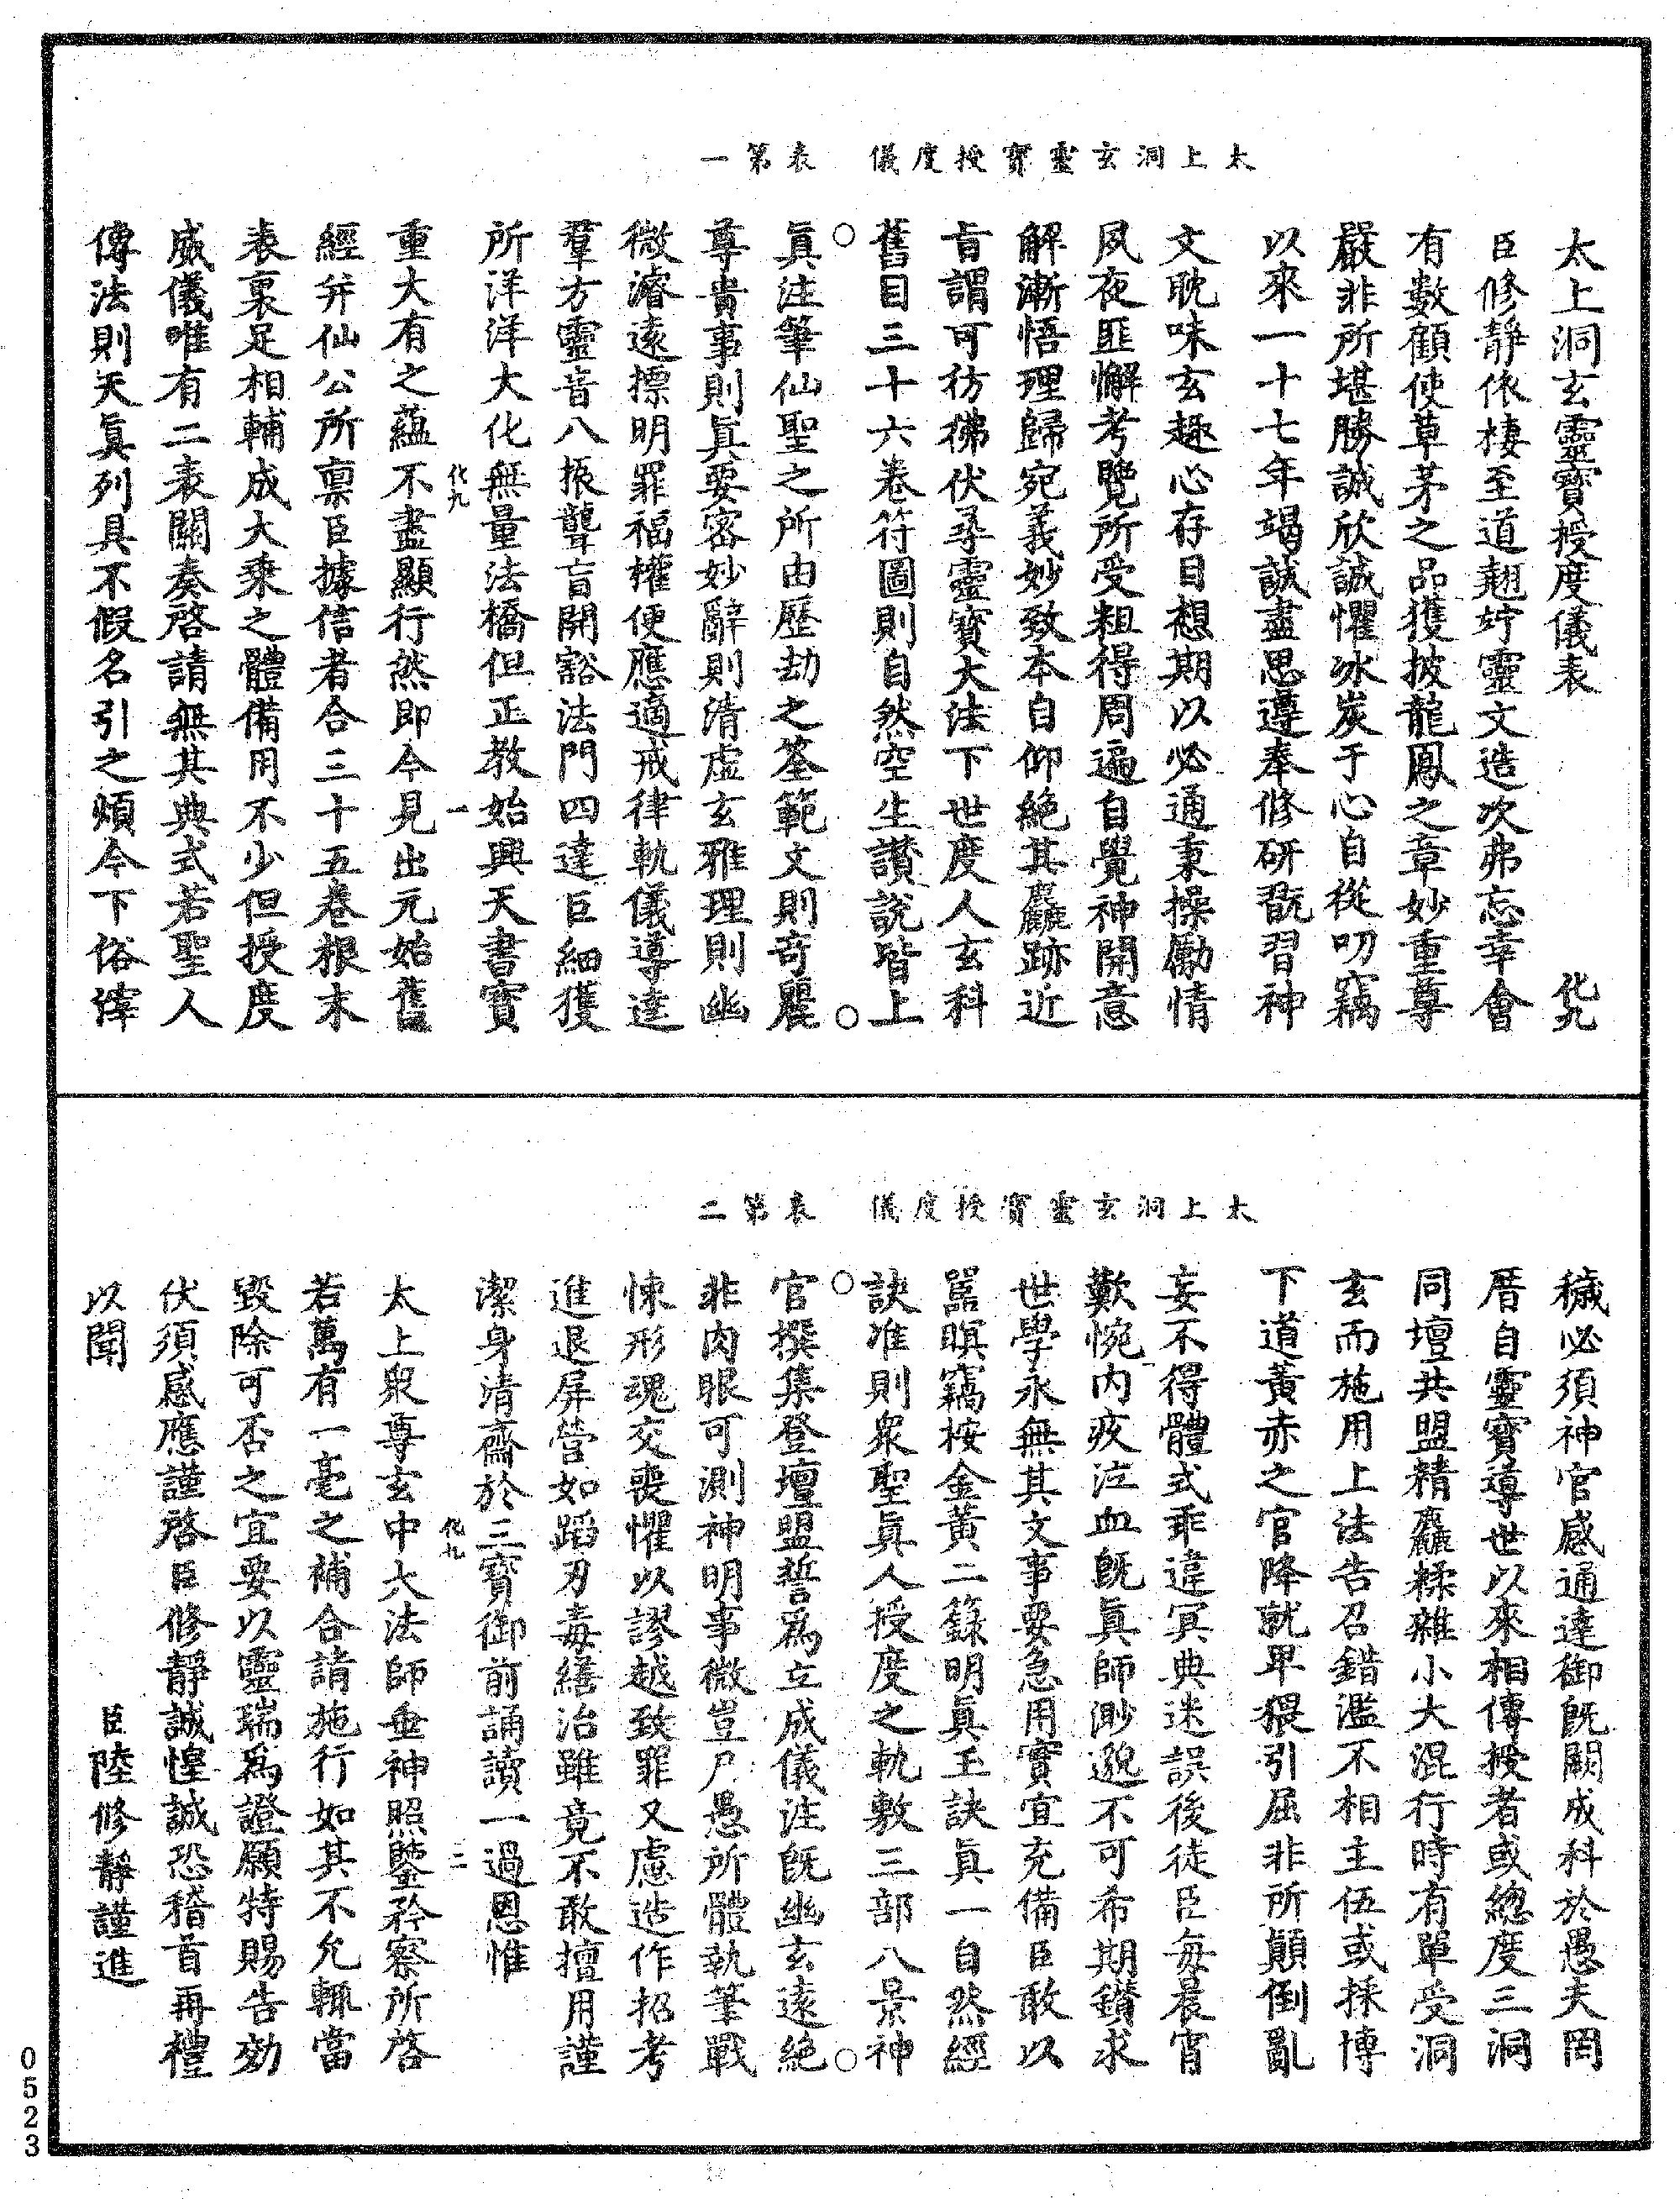 太上洞玄靈寶授度儀　表第一
太上洞玄靈寶授度儀表　化九
臣修靜依棲至道翹竚靈文造次弗忘幸會
有數顧使草茅之品獲披龍鳳之章妙重尊
嚴非所堪勝誠欣誠懼冰炭于心自從叨竊
以來一十七年竭誠盡思遵奉修研翫習神
文耽味玄趣心存目想期以必通秉操勵情
夙夜匪懈考覽所受粗得周遍自覺神開意
解漸悟理歸宛義妙致本自仰絶其麤跡近
旨謂可彷彿伏尋靈寶大法下世度人玄科
舊目三十六卷符圖則自然空生讃說皆上
眞注筆仙聖之所由歷劫之筌範文則奇麗
尊貴事則眞要密妙辭則清虛玄雅理則幽
微濬遠摽明罪福權便應適戒律軌儀導達
羣方靈音八振聾盲開豁法門四達巨細獲
所洋洋大化無量法橋但正教始興天書寶
化九　一
重大有之蘊不盡顯行然即今見出元始舊
經并仙公所禀臣據信者合三十五卷根末
表裏足相輔成大乘之體備用不少但授度
威儀唯有二表關奏啓請無其典式若聖人
傳法則天眞列具不假名引之煩今下俗滓
太上洞玄靈寶授度儀　表第二
穢必須神官感通達御旣闕成科於愚夫罔
厝自靈寶導世以來相傳授者或總度三洞
同壇共盟精麤糅雜小大混行時有單受洞
玄而施用上法告召錯濫不相主伍或採博
下道黃赤之官降就卑猥引屈非所顛倒亂
妄不得體式乖違冥典迷誤後徒臣每晨宵
歎惋内疚泣血旣眞師渺邈不可希期鑽求
世學永無其文事要急用實宜充備臣敢以
嚚瞑竊按金黃二籙明眞玉訣眞一自然經
訣准則衆聖眞人授度之軌敷三部八景神
官撰集登壇盟誓爲立成儀注旣幽玄遠絶
非肉眼可測神明事微豈尸愚所體執筆戰
悚形魂交喪懼以謬越致罪又慮造作招考
進退屏營如蹈刃毒繕治雖竟不敢擅用謹
潔身清齋於三寶御前誦讀一過恩惟
化九　二
太上衆尊玄中大法師垂神照鑒矜察所啓
若萬有一毫之補合請施行如其不允輒當
毀除可否之宜要以靈瑞爲證願特賜告効
伏須感應謹啓臣修靜誠惶誠恐稽首再禮
以聞　臣陸修靜謹進
0523